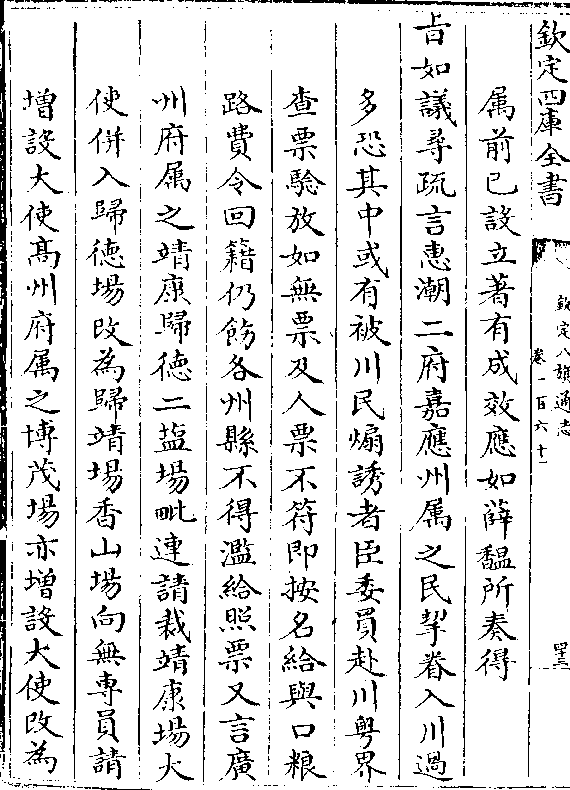 欽定四庫全書
欽定八旗通志
卷一百六十一
四十三
属前已設立著有成效應如薛馧所奏得
㫖如議尋疏言惠潮二府嘉應州属之民挈眷入川過
多恐其中或有被川民煽誘者臣委員赴川粤界
查票驗放如無票及人票不符即按名給與口粮
路費令回籍仍飭各州縣不得濫給照票又言廣
州府属之靖康歸徳二塩場毗連請裁靖康場大
使併入歸徳場改為歸靖場香山場向無專員請
増設大使髙州府属之博茂場亦増設大使改為